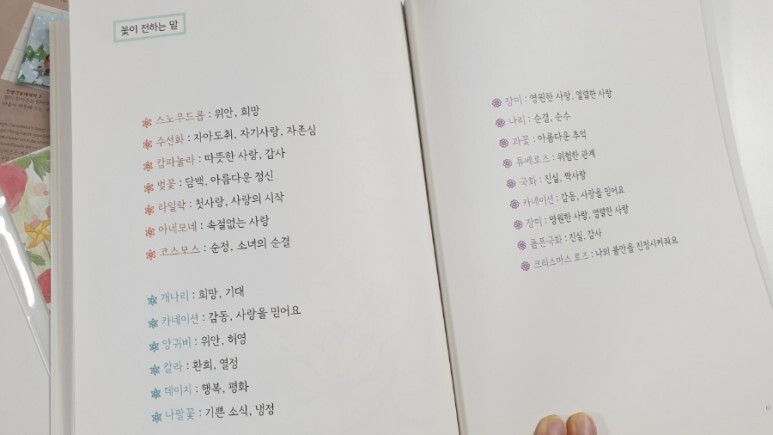 꽃이 전하는 말
스노우드롭 : 위안, 희망
수선화 : 자아도취, 자기사랑, 자존심
캄파눌라 : 따뜻한 사랑, 감사
벚꽃 : 담백, 아름다운 정신
라일락 : 첫사랑, 사랑의 시작
아네모네 : 속절없는 사랑
코스모스 : 순정, 소녀의 순결
개나리 : 희망, 기대
카네이션 : 감동, 사랑을 믿어요
양귀비 : 위안, 허영
칼라 : 환희, 열정
데이지 : 행복, 평화
나팔꽃 : 기쁜 소식, 냉정
장미 : 영원한 사랑, 열렬한 사랑
나리 : 순결, 순수
과꽃 : 아름다운 추억
튜베로즈 : 위험한 관계
국화 : 진실, 짝사랑
카네이션 : 감동, 사랑을 믿어요
장미 : 영원한 사랑, 열렬한 사랑
폼폰국화 : 진실, 감사
크리스마스 로즈 : 나의 불안을 진정시켜줘요